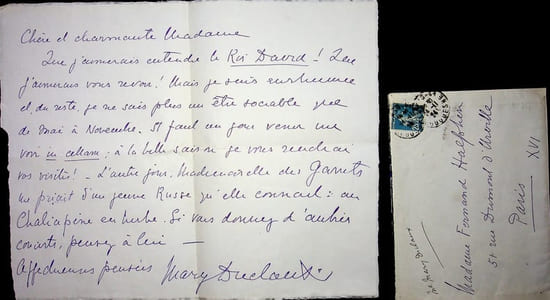 Chère et charmante Madame
Que j'aimerais entendre le Roi David! Que
j'aimerais vous revoir! Mais je suis enrhumée
et, du reste, je ne sais plus un être sociable que
de Mai à Novembre. Il faut un jour venir me
voir in cellam; à la belle saison je vous rendrai
vos visites! – L'autre jour, Mademoiselle des Garets
me priait d'un jeune Russe qu'elle connait: un
Chaliapine en herbe. Si vous donnez d'autres
concerts, pensez à lui —
Affectueuses pensées Mary Duclaux
Madame Fernand Halphen
54 rue Dumont d'Urville
Paris XVI